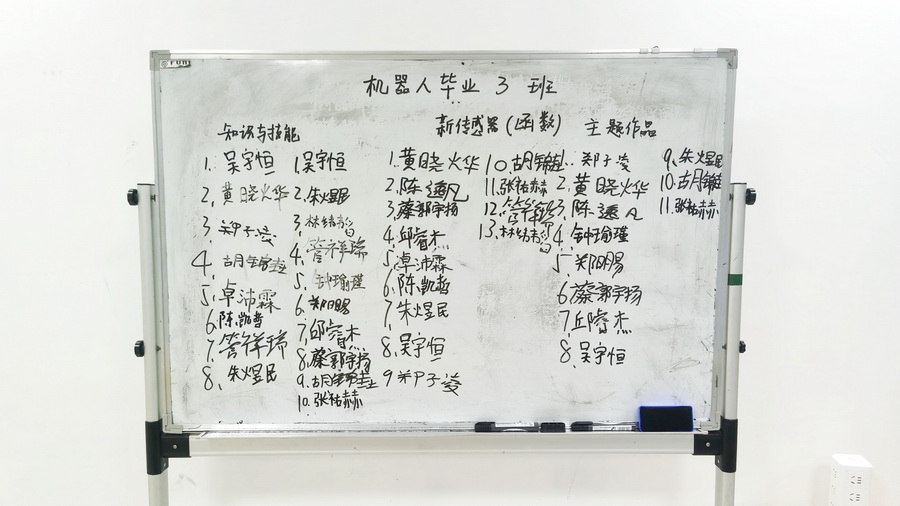 机器人毕业3班
知识与技能
1. 吴宇恒
2. 黄晓烨
3. 郑子凌
4. 胡锦
5. 卓沛霖
6. 陈凯哲
7. 管祥瑞
8. 朱煜民
1. 吴宇恒
2. 朱煜民
3. 林绪
4. 管祥瑞
5. 钟瑜瑾
6. 郑阳赐
7. 邱睿杰
8. 蔡郭宇扬
9. 胡锦
10. 张祐赫
新传感器(函数)
1. 黄晓烨
2. 陈逸凡
3. 蔡郭宇扬
4. 邱睿杰
5. 卓沛霖
6. 陈凯哲
7. 朱煜民
8. 吴宇恒
9 郑子凌
10. 胡锦
11. 张祐赫
12. 管祥瑞
13. 林绪
主题作品
1. 郑子凌
2. 黄晓烨
3. 陈逸凡
4. 钟瑜瑾
5. 郑阳赐
6. 蔡郭宇扬
7. 邱睿杰
8. 吴宇恒
9. 朱煜民
10. 胡锦
11. 张祐赫